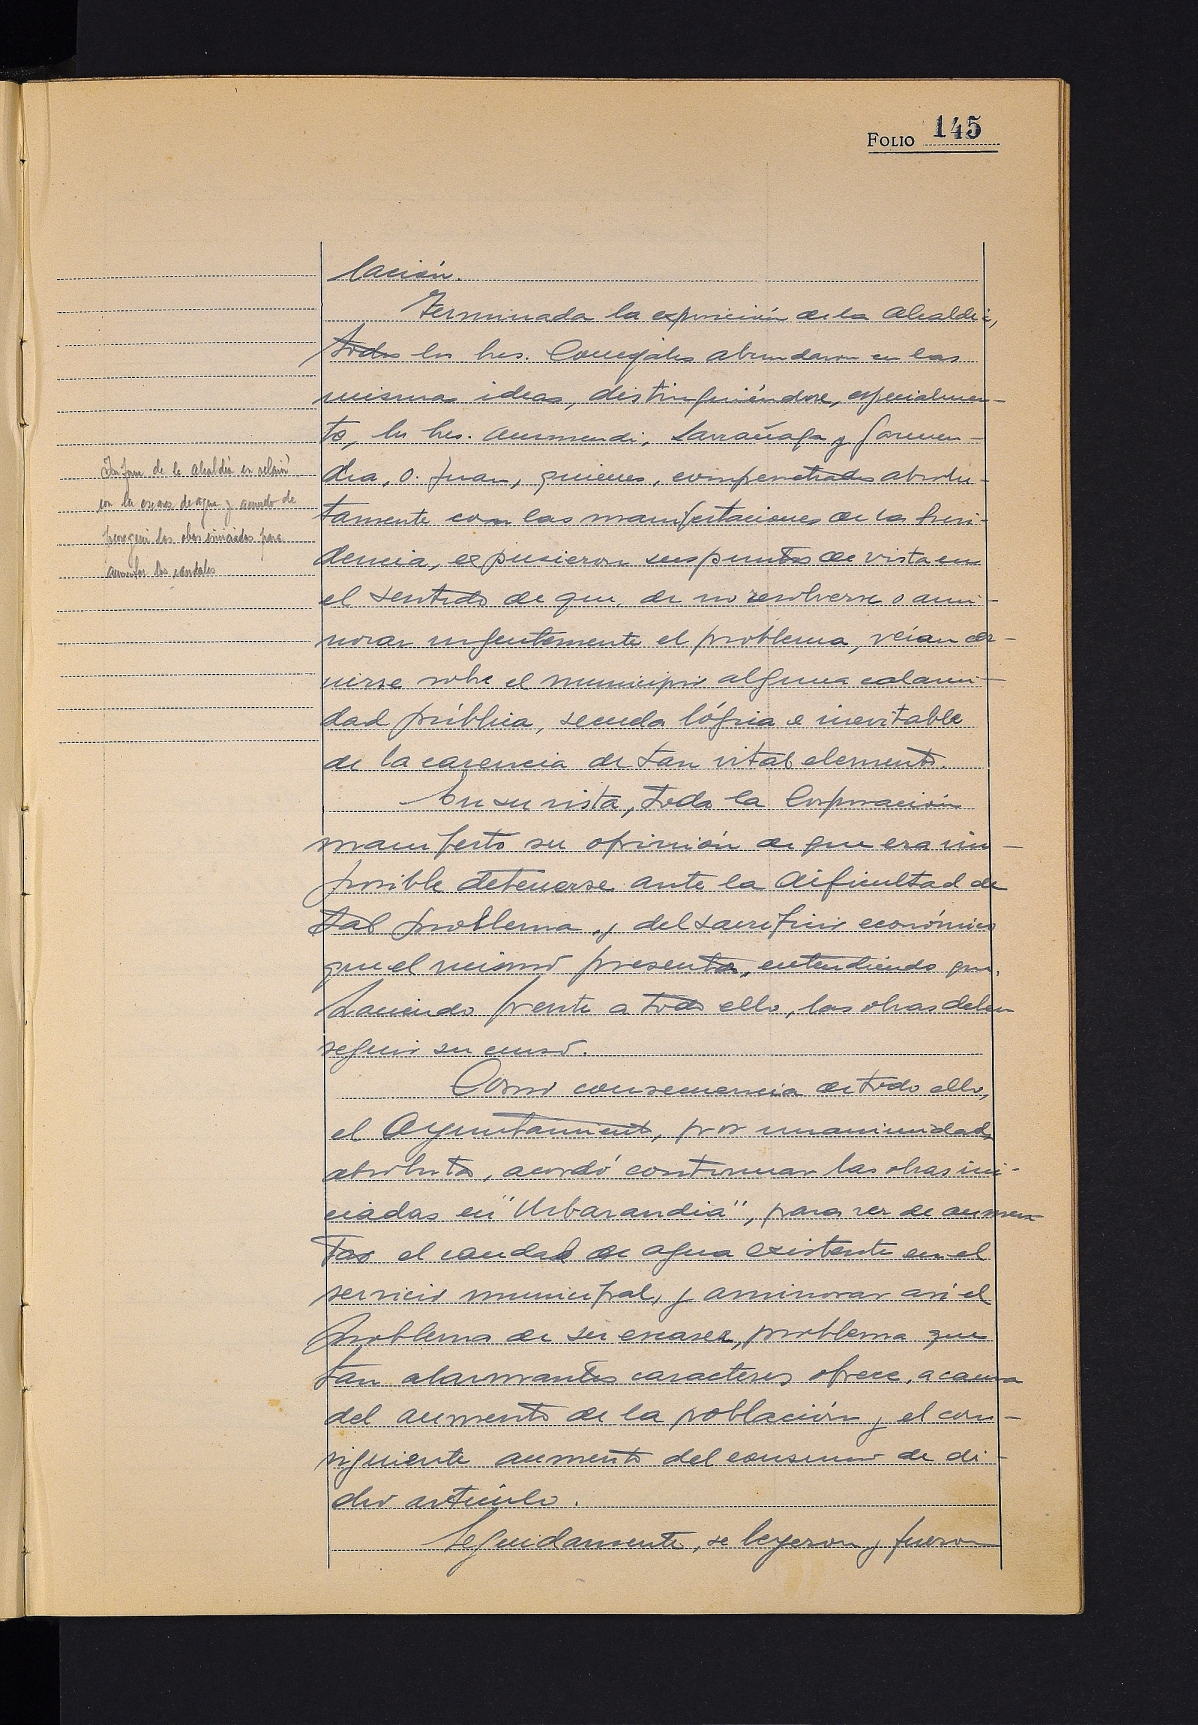 FOLIO 145
lación.
Terminada la exposición de la Alcaldía,
todos los Sres. Concejales abundaron en las
mismas ideas, distinguiéndose, especialmen-
te, los Sres. Aurmendi, Larrañaga y Garmen-
dia, D. Juan, quienes, compenetrados absolu-
tamente con las manifestaciones de la Presi-
dencia, expusieron sus puntos de vista en
el sentido de que, de no resolverse o ami-
norar urgentemente el problema, veían cer-
nirse sobre el municipio alguna calami-
dad pública, secuela lógica e inevitable
de la carencia de tan vital elemento.
En su vista, toda la Corporación
manifestó su opinión de que era im-
posible detenerse ante la dificultad de
tal problema y del sacrificio económico
que el mismo presenta, entendiendo que,
haciendo frente a todo ello, las obras deben
seguir su curso.
Como consecuencia de todo ello,
el Ayuntamiento, por unanimidad
absoluta, acordó continuar las obras ini-
ciadas en "Urbarandia", para ver de aumen
tar el caudal de agua existente en el
servicio municipal, y aminorar así el
problema de su escasez, problema que
tan alarmantes caracteres ofrece, a causa
del aumento de la población y el con-
siguiente aumento del consumo de di-
cho artículo.
Seguidamente, se leyeron y fueron
Informe de la Alcaldía en relación
con la escasez de agua y acuerdo de
proseguir las obras iniciadas para
aumentar los caudales